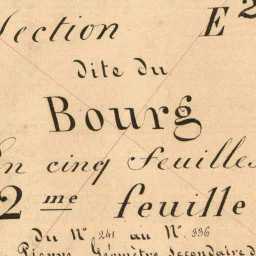 Section E 2
dite du
Bourg
En cinq feuilles
2me feuille
du No 241 au No. 336
Pierre Géomètre secondaire d